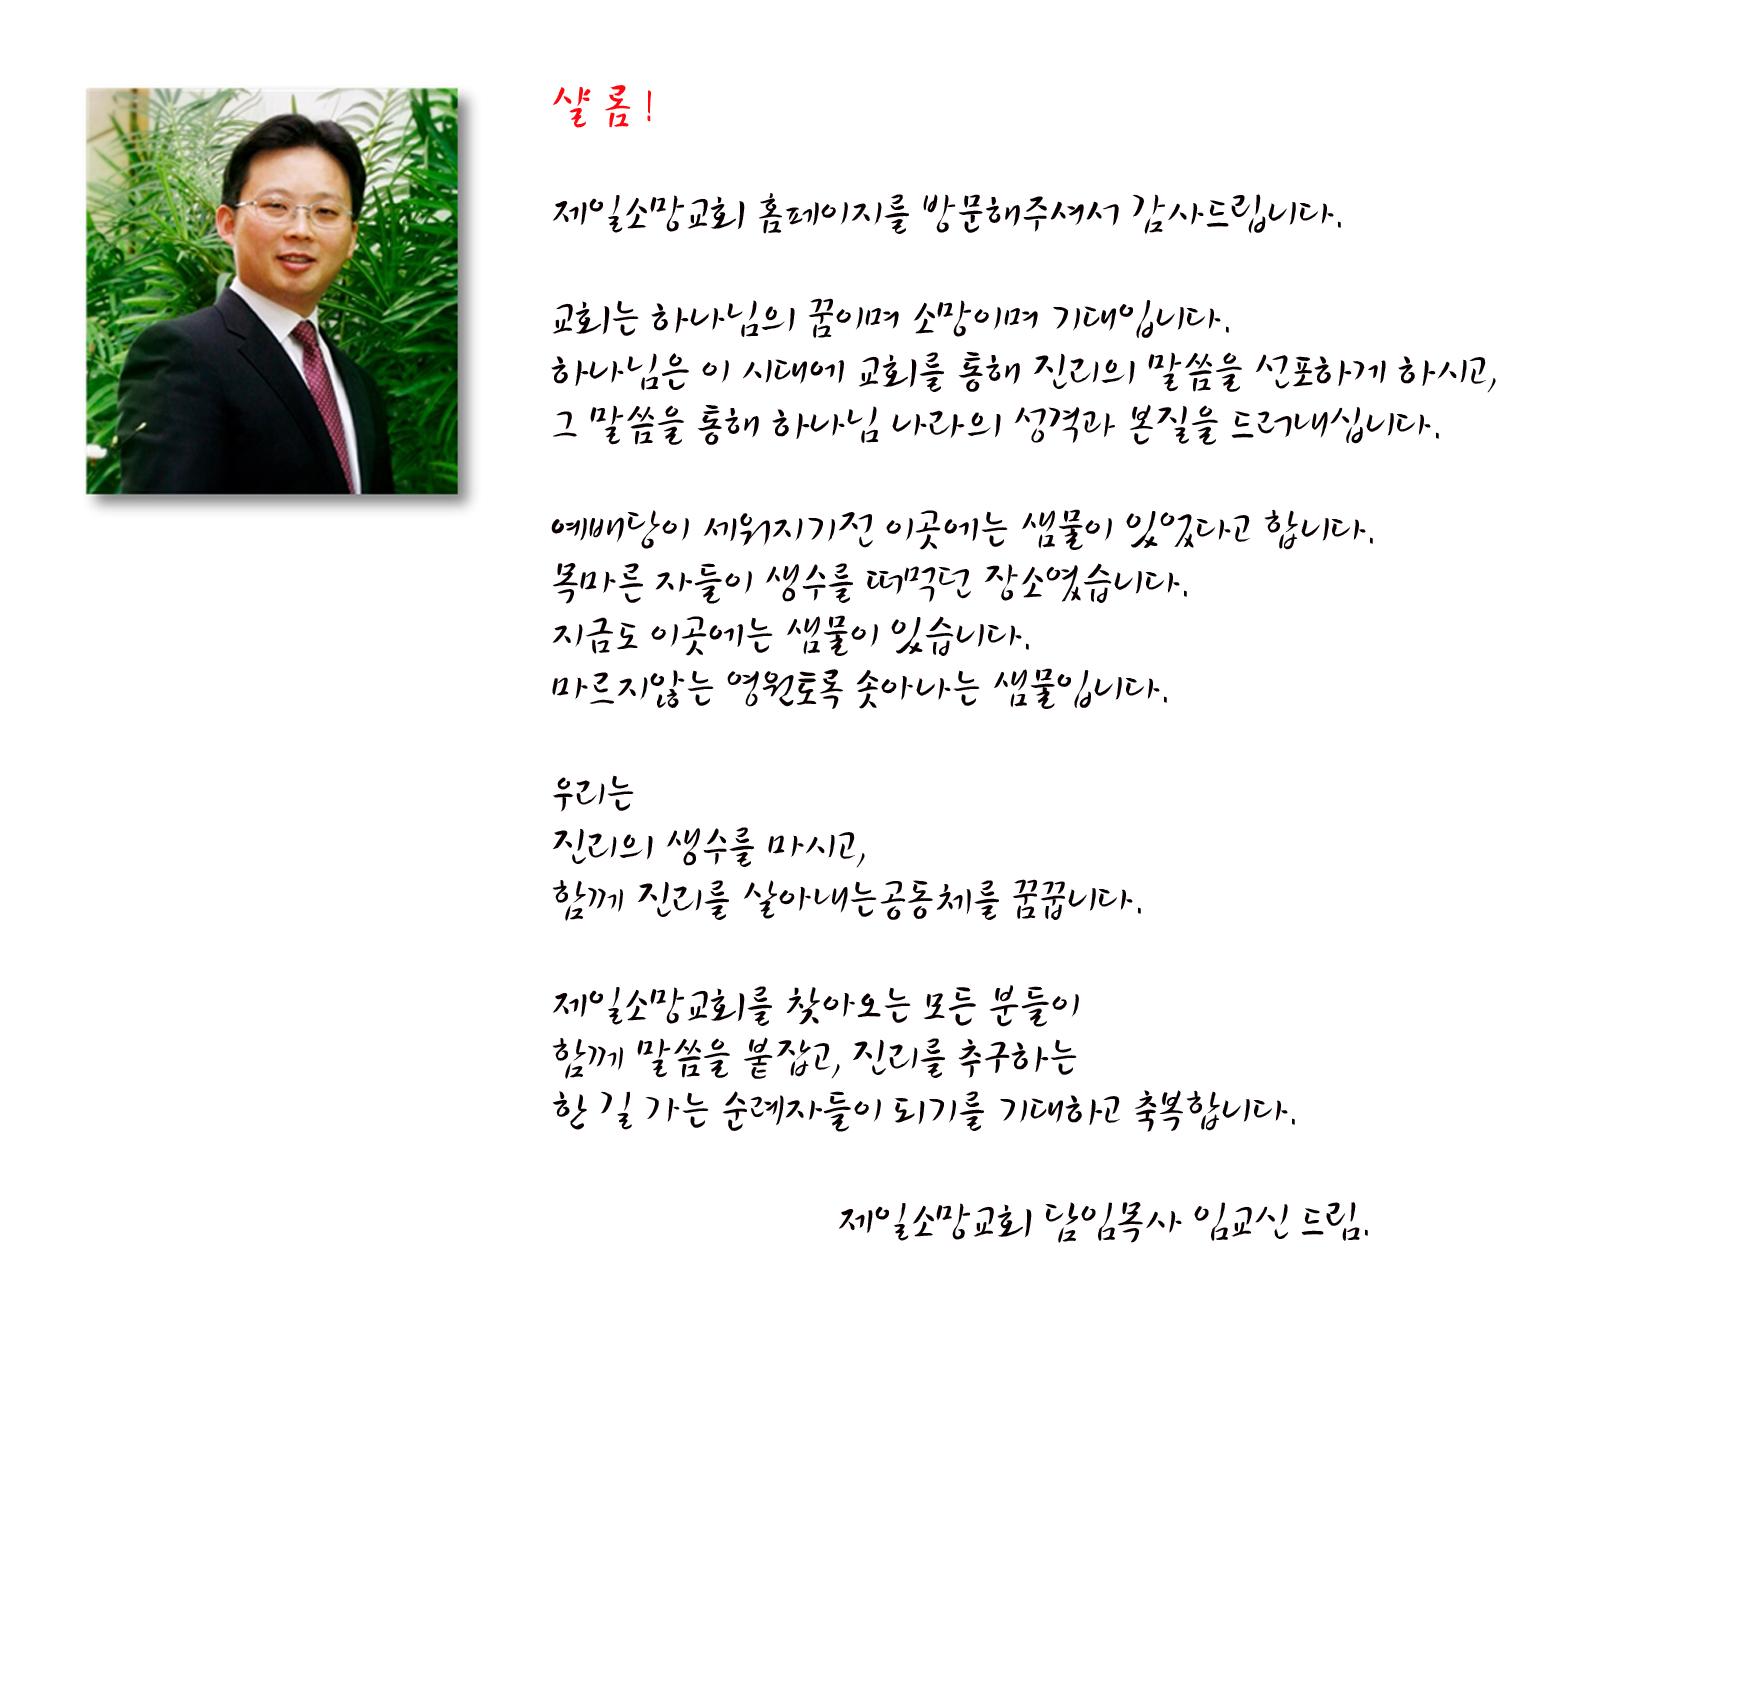 샬 롬 !
제일소망교회 홈페이지를 방문해주셔서 감사드립니다.
교회는 하나님의 꿈이며 소망이며 기대입니다.
하나님은 이 시대에 교회를 통해 진리의 말씀을 선포하게 하시고,
그 말씀을 통해 하나님 나라의 성격과 본질을 드러내십니다.
예배당이 세워지기전 이곳에는 샘물이 있었다고 합니다.
목마른 자들이 생수를 떠먹던 장소였습니다.
지금도 이곳에는 샘물이 있습니다.
마르지않는 영원토록 솟아나는 샘물입니다.
우리는
진리의 생수를 마시고,
함께 진리를 살아내는공동체를 꿈꿉니다.
제일소망교회를 찾아오는 모든 분들이
함께 말씀을 붙잡고, 진리를 추구하는
한 길 가는 순례자들이 되기를 기대하고 축복합니다.
제일소망교회 담임목사 임교신 드림.